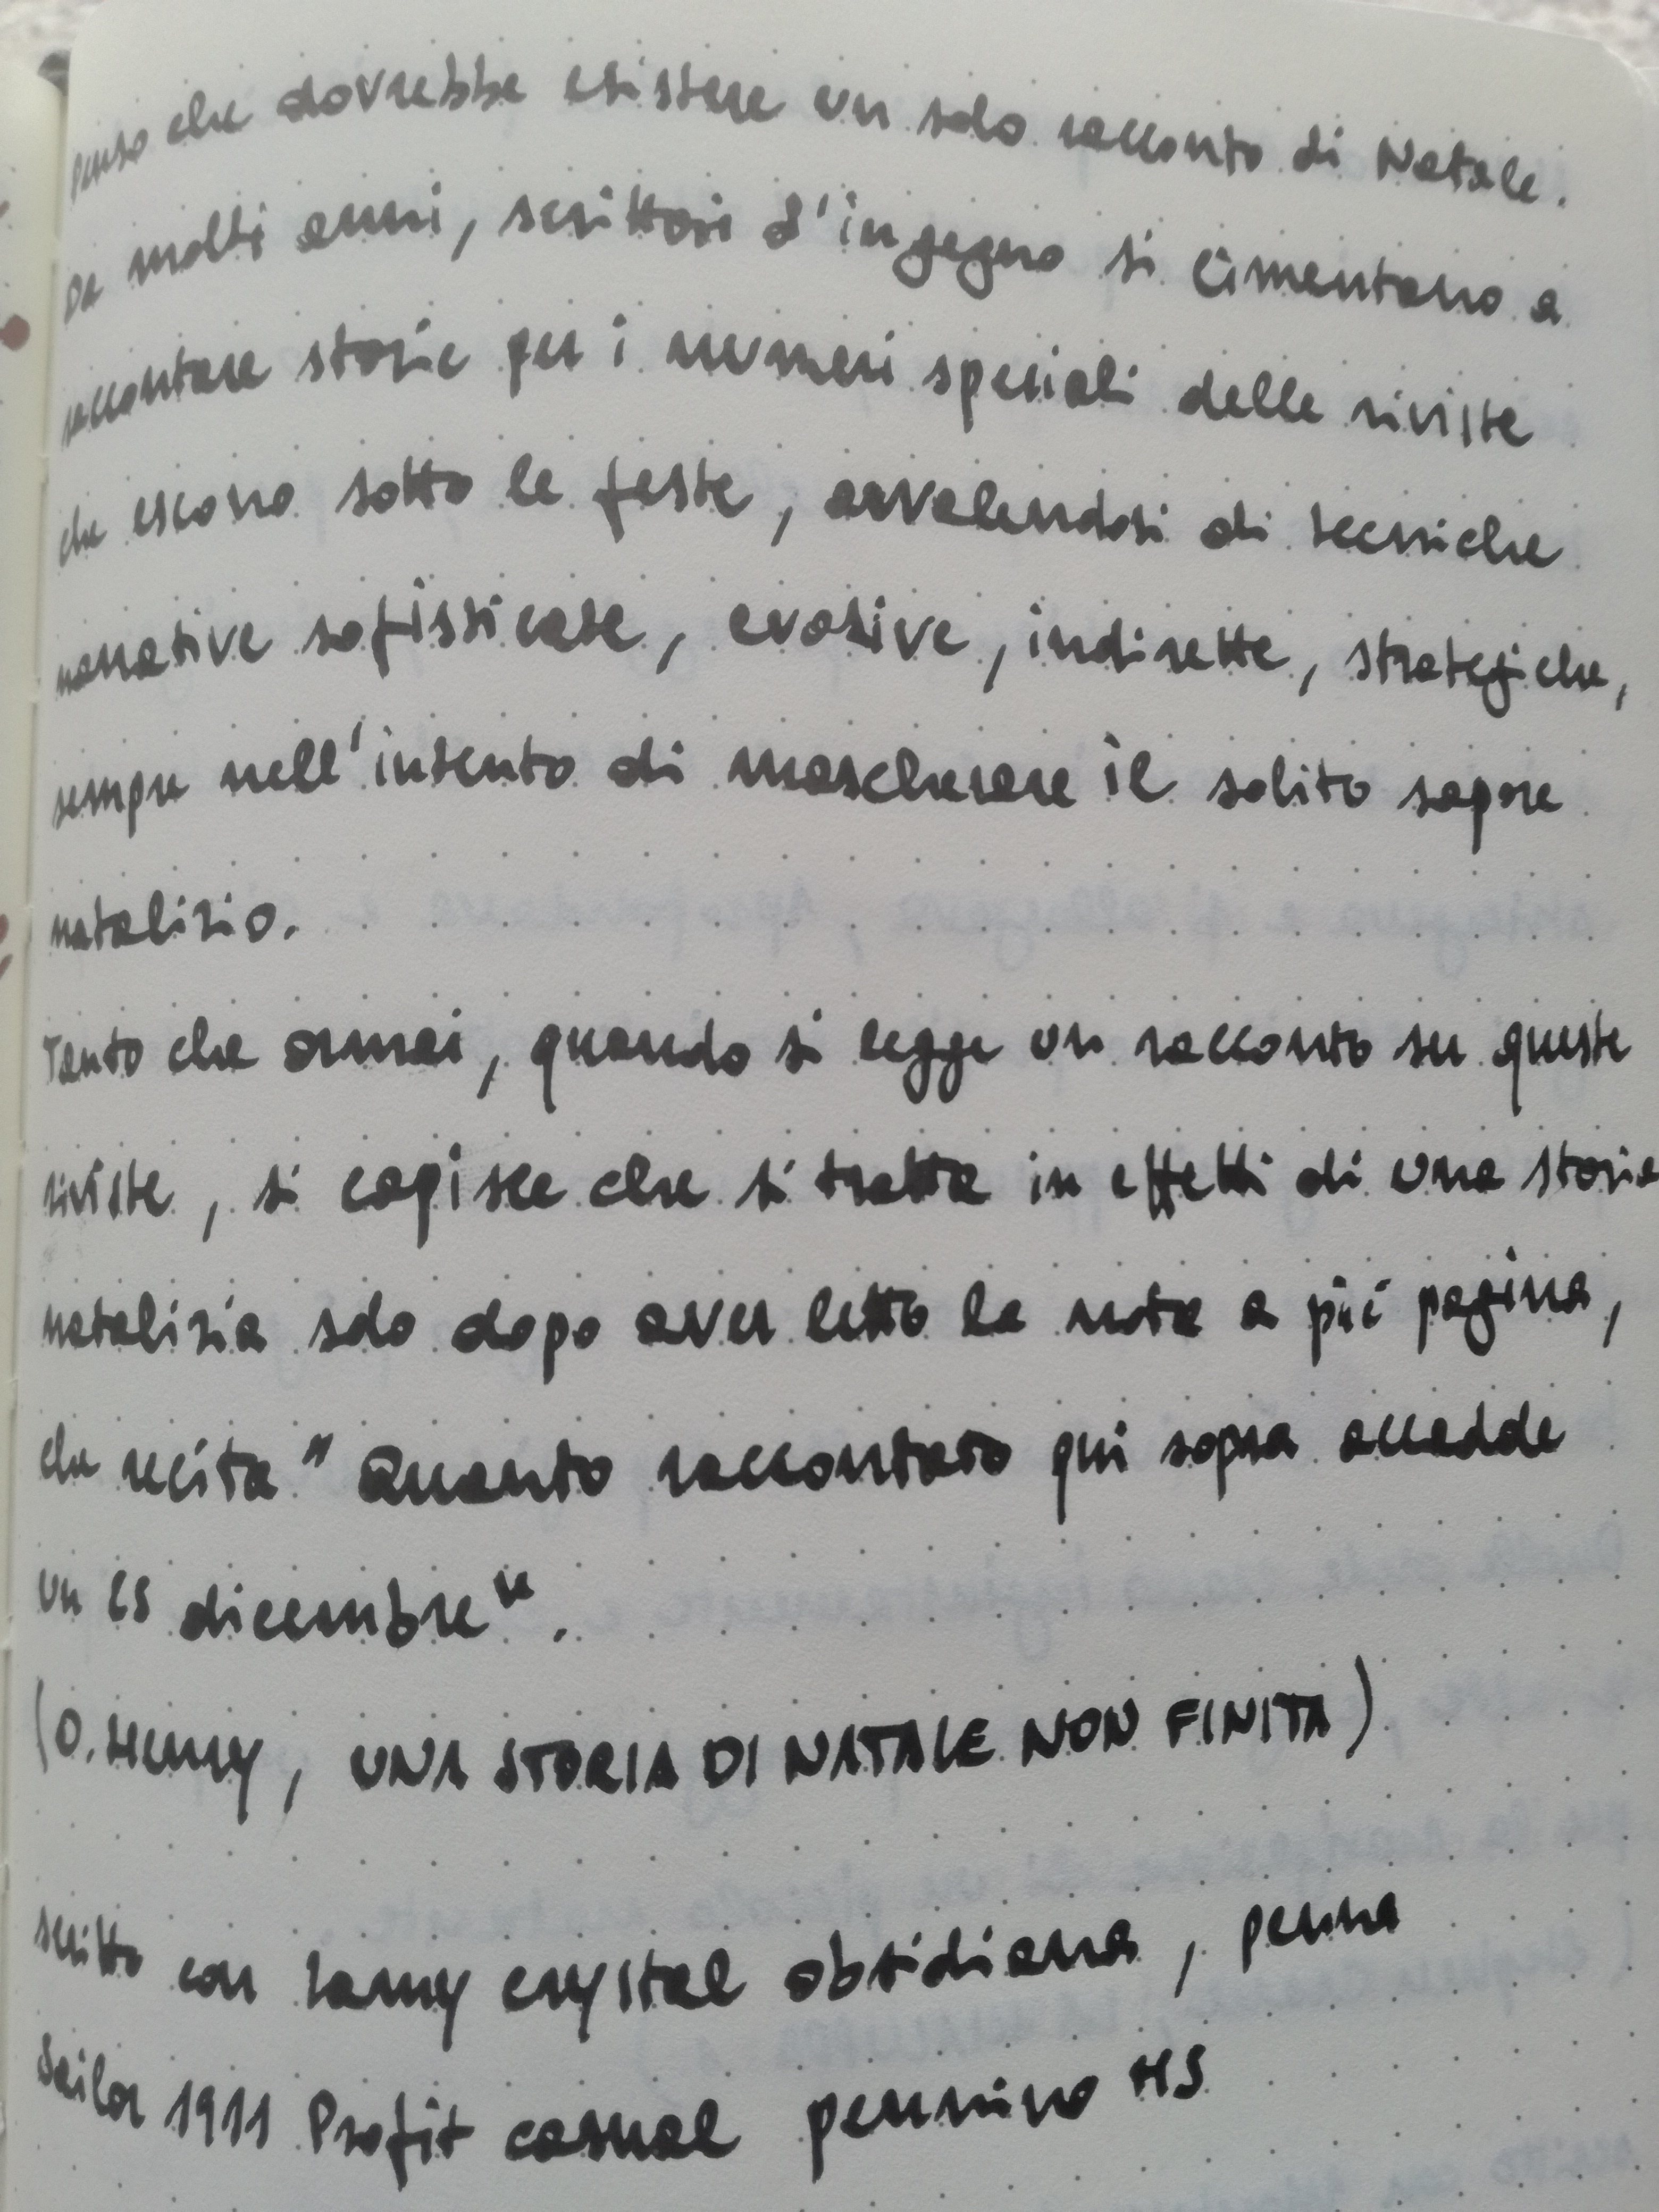 Penso che dovrebbe esistere un solo racconto di Natale.
Da molti anni, scrittori d'ingegno si cimentano a
raccontare storie per i numeri speciali delle riviste
che escono sotto le feste, avvalendosi di tecniche
narrative sofisticate, evasive, indirette, strategiche,
sempre nell'intento di mascherare il solito sapore
natalizio.
Tanto che ormai, quando si legge un racconto su queste
riviste, si capisce che si tratta in effetti di una storia
natalizia solo dopo aver letto la nota a piè pagina,
che recita "Quanto raccontato qui sopra accadde
un 25 dicembre".
(O. Henry, UNA STORIA DI NATALE NON FINITA)
scritto con Lamy crystal obsidiana, penna
Sailor 1911 Profit casual pennino MS